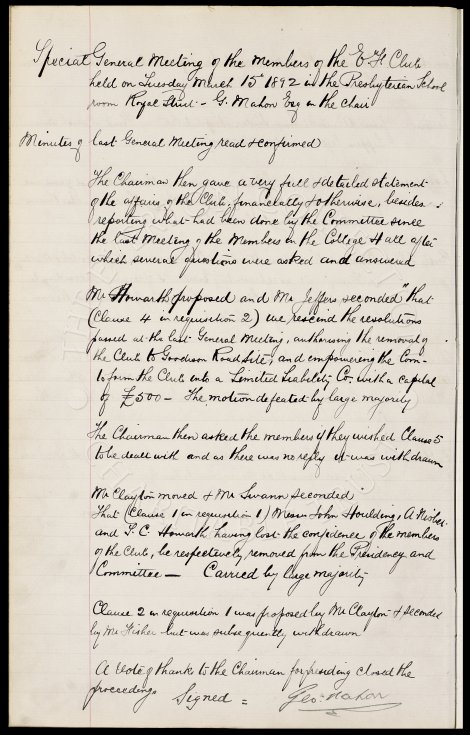 Special General Meeting of the Members of the E. F. Club
held on Tuesday March 15th 1892 in the Presbyterian School
room Royal Street - G. Mahon Esq in the chair
Minutes of last General Meeting read & confirmed
The Chairman then gave a very full & detailed statement
of the affairs of the Club, financially & otherwise, besides
reporting what had been done by the Committee since
the last Meeting of the Members in the College Hall after
which several questions were asked and answered
Mr Howarth proposed and Mr Jeffers seconded "that
(Clause 4 in requisition 2) we rescind the resolutions
passed at the last General Meeting, authorising the removal of
the Club to Goodison Road Site, and empowering the Com-
to form the Club into a Limited Liability Co. with a capital
of £500 - The motion defeated by large majority
The Chairman then asked the members if they wished Clause 5
to be dealt with and as there was no reply it was withdrawn
Mr Clayton moved & Mr Swann seconded
That (Clause 1 in requisition 1) Messrs John Houlding, A Nisbet
and T. C. Howarth having lost the confidence of the members
of the Club, be respectively removed from the Presidency and
Committee — Carried by large majority
Clause 2 in requisition 1 was proposed by Mr Clayton & seconded
by Mr Fisher but was subsequently withdrawn
A vote of thanks to the Chairman for presiding closed the
proceedings Signed = Geo. Mahon